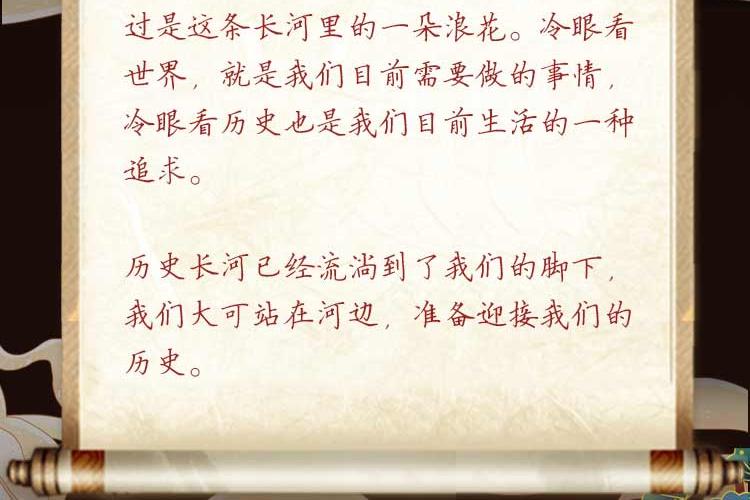 过是这条长河里的一朵浪花。冷眼看
世界，就是我们目前需要做的事情，
冷眼看历史也是我们目前生活的一种
追求。
历史长河已经流淌到了我们的脚下，
我们大可站在河边，准备迎接我们的
历史。